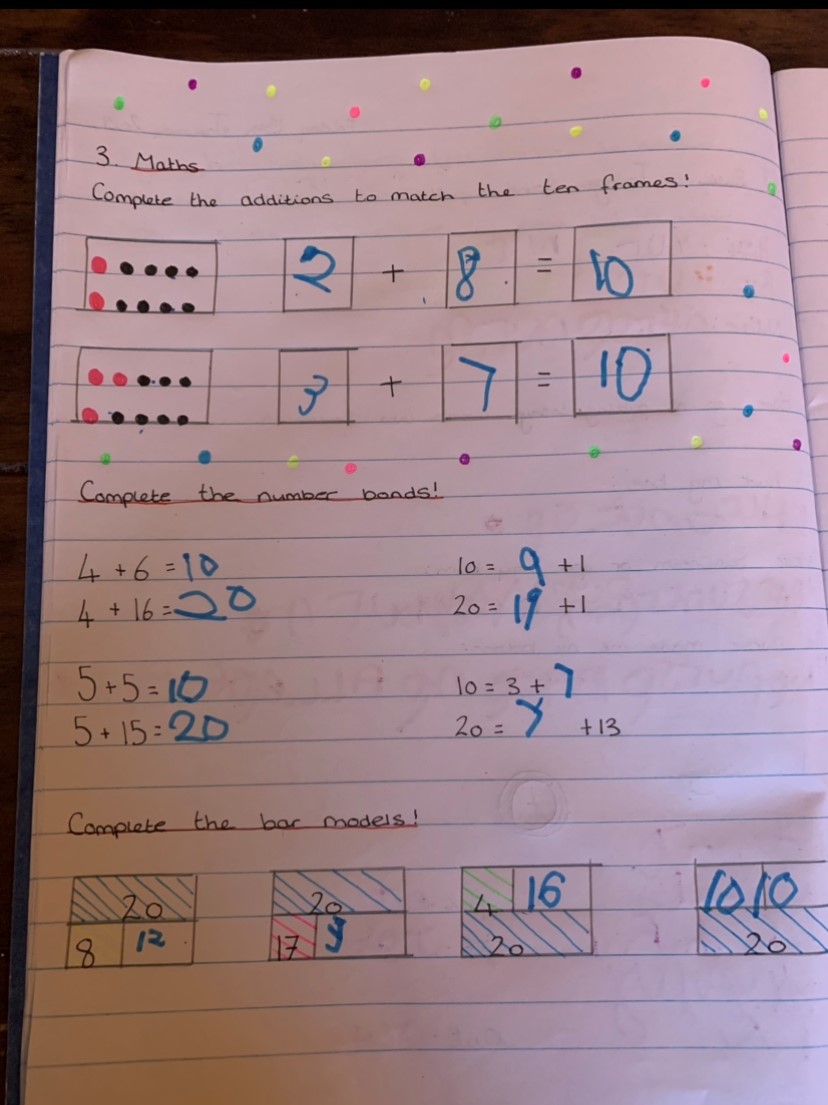 3. Maths
Complete the additions to match the ten frames!
2 + 8 = 10
3 + 7 = 10
Complete the number bonds!
4 + 6 = 10
10 = 9 + 1
4 + 16 = 20
20 = 19 + 1
5 + 5 = 10
10 = 3 + 7
5 + 15 = 20
20 = 7 + 13
Complete the bar models!
20
8 12
20
17
4 16
20
10 10
20